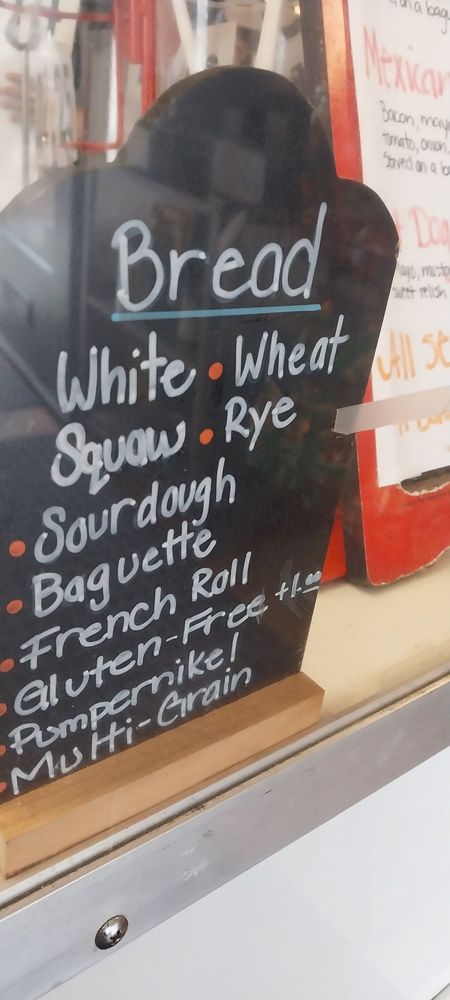 Bread
White • Wheat
Squaw • Rye
• Sourdough
• Baguette
• French Roll
• Gluten-Free +1.00
• Pumpernikel
• Multi-Grain
on a bag
Mexican
Bacon, mayo
tomato, onion,
Served on a b
Dog
mayo, musta
sweet relish
All se